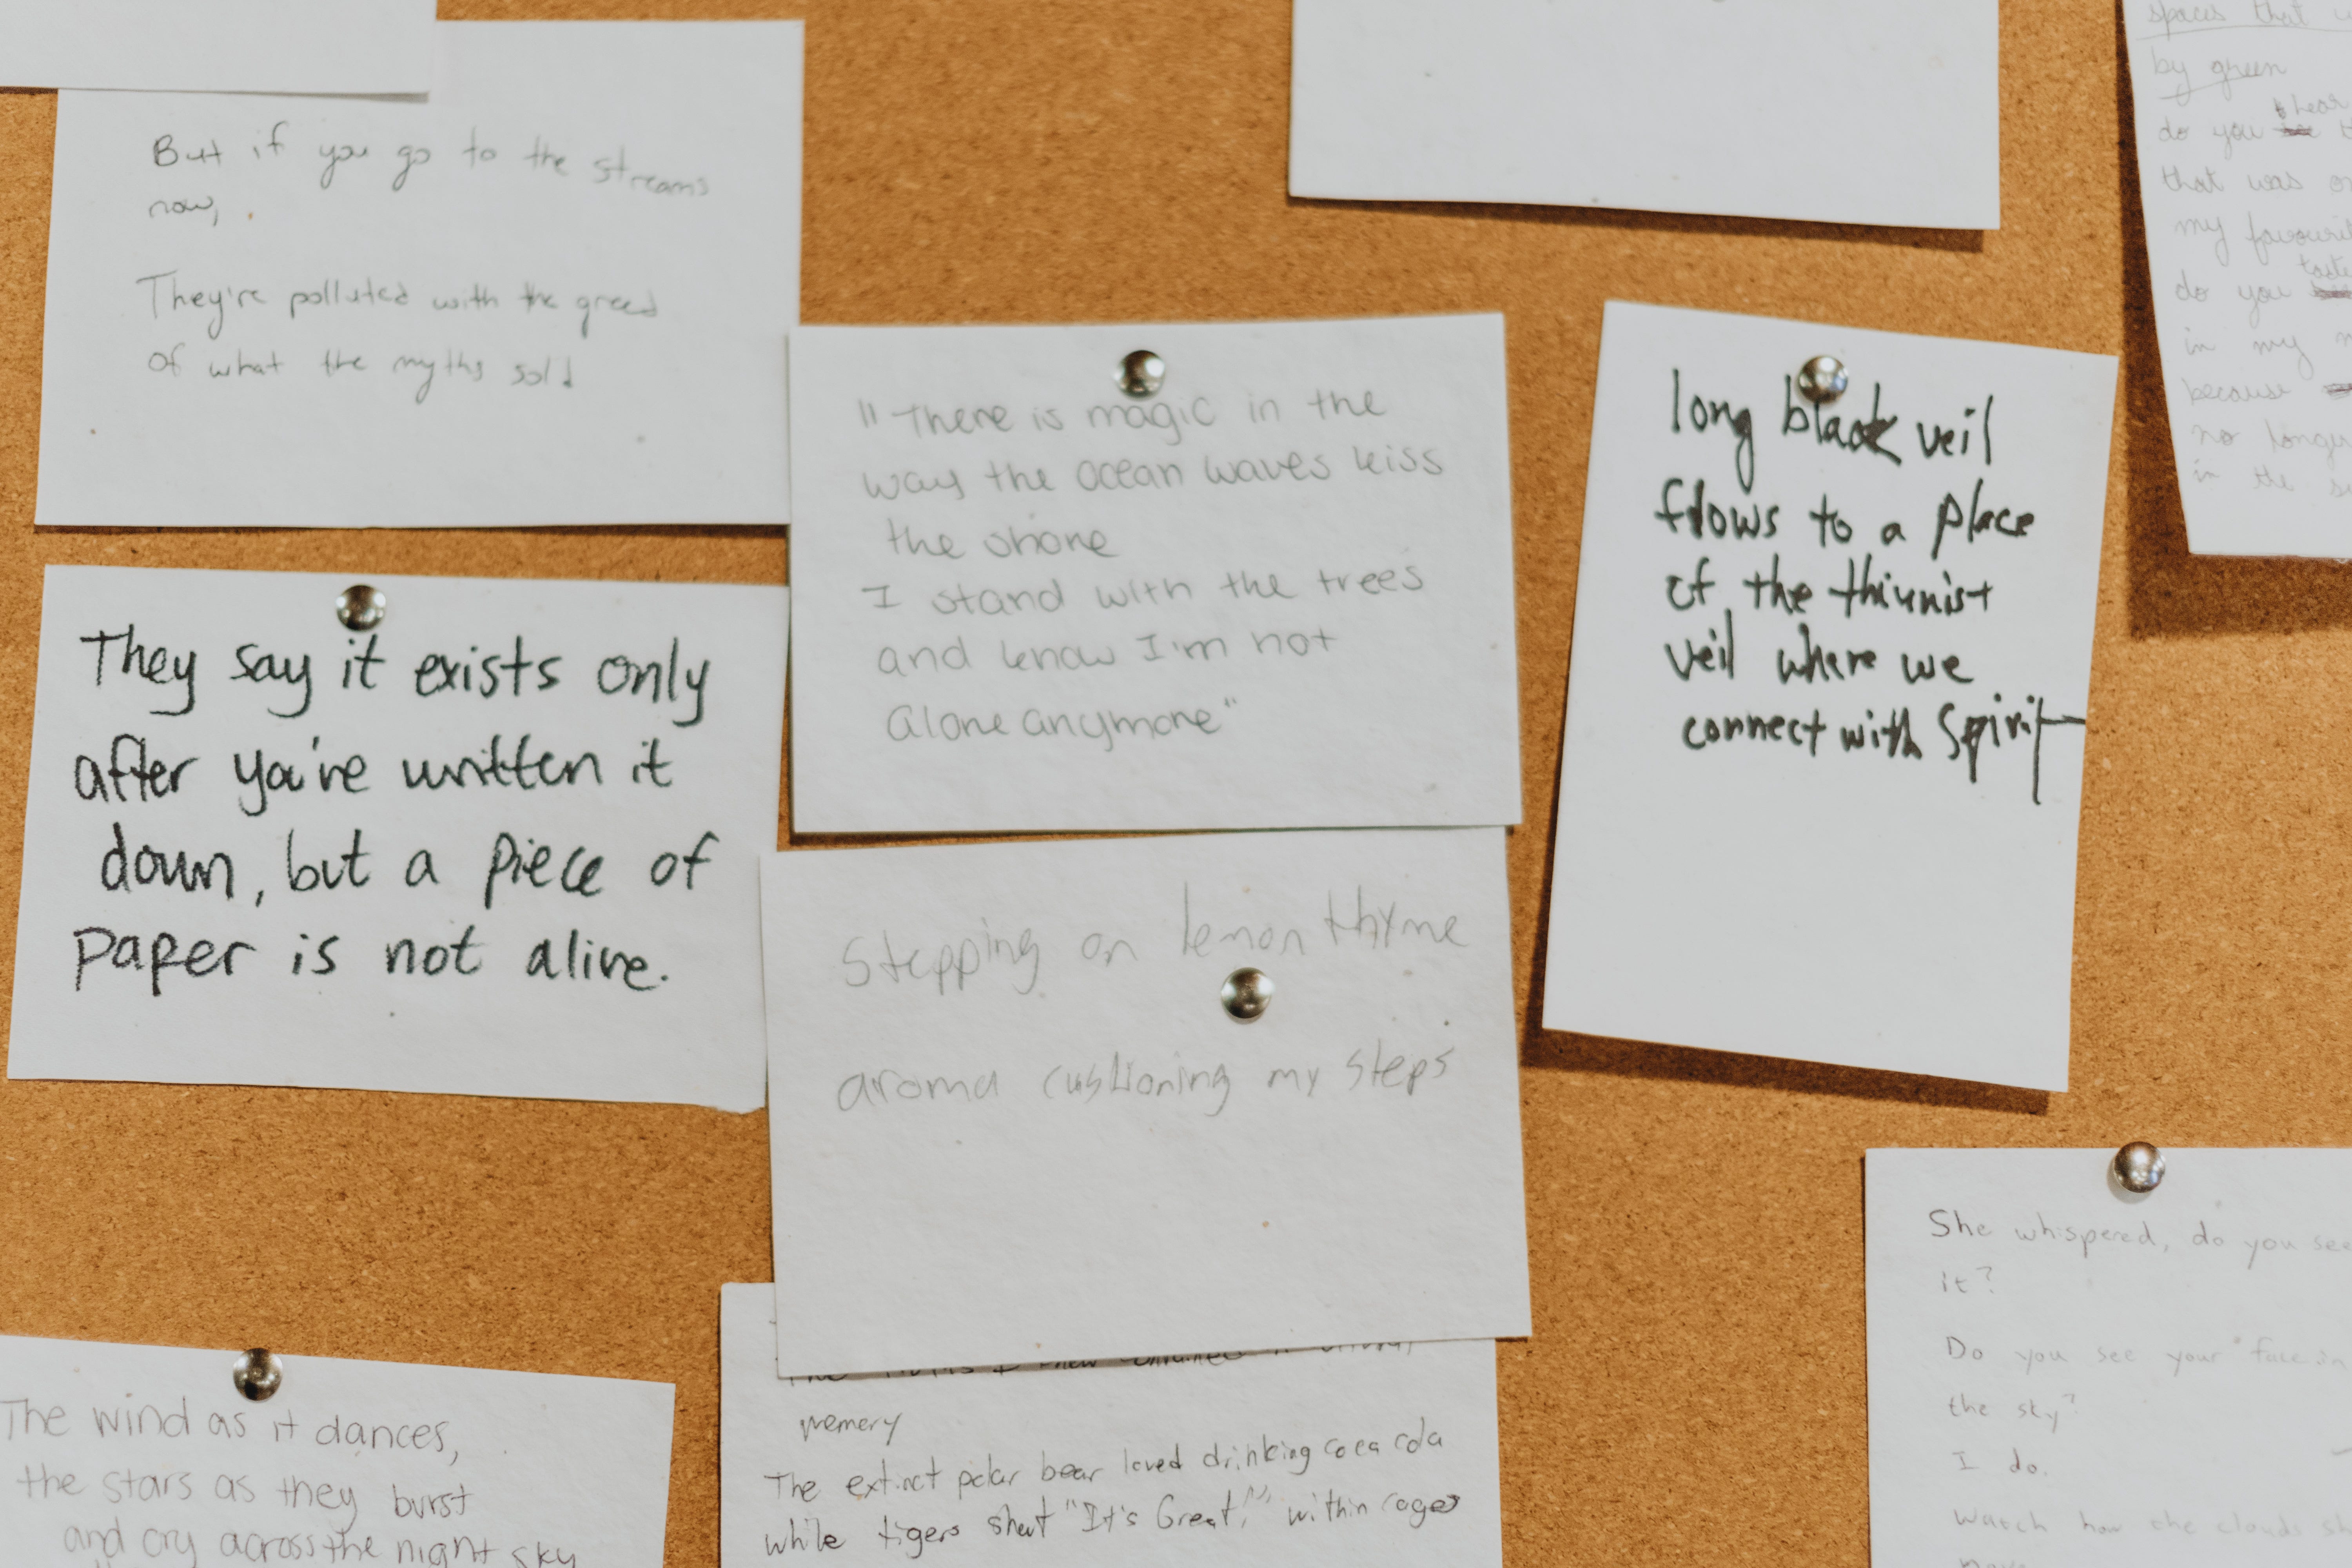 But if you go to the streams
now,
They're polluted with the greed
of what the myths sold
spaces that
by green
hear
do you
that was
my
taste
do you
in my
because
no longer
in the
"There is magic in the
way the ocean waves kiss
the shore
I stand with the trees
and know I'm not
alone anymore"
long black veil
flows to a place
of the thinnist
veil where we
connect with Spirit
They say it exists only
after you've written it
down, but a piece of
paper is not alive.
Stepping on lemon thyme
aroma cushioning my steps
She whispered, do you see
it?
Do you see your face in
the sky?
I do.
Watch how the clouds
The wind as it dances,
the stars as they burst
and cry across the night sky
memory
The extinct polar bear loved drinking coca cola
while tigers shout "It's Great!" within cages